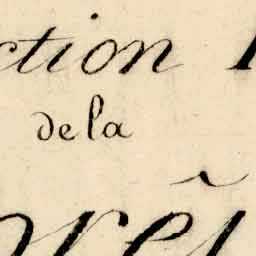 ction
de la
orêt